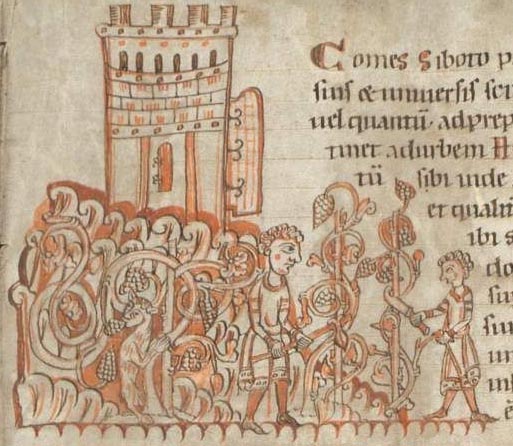 Comes Siboto p
suis & uniuersis scri
uel quantū· ad prep
tinet ad urbem
tū sibi inde
et qualit
ibi s
do
su
su
un
inf